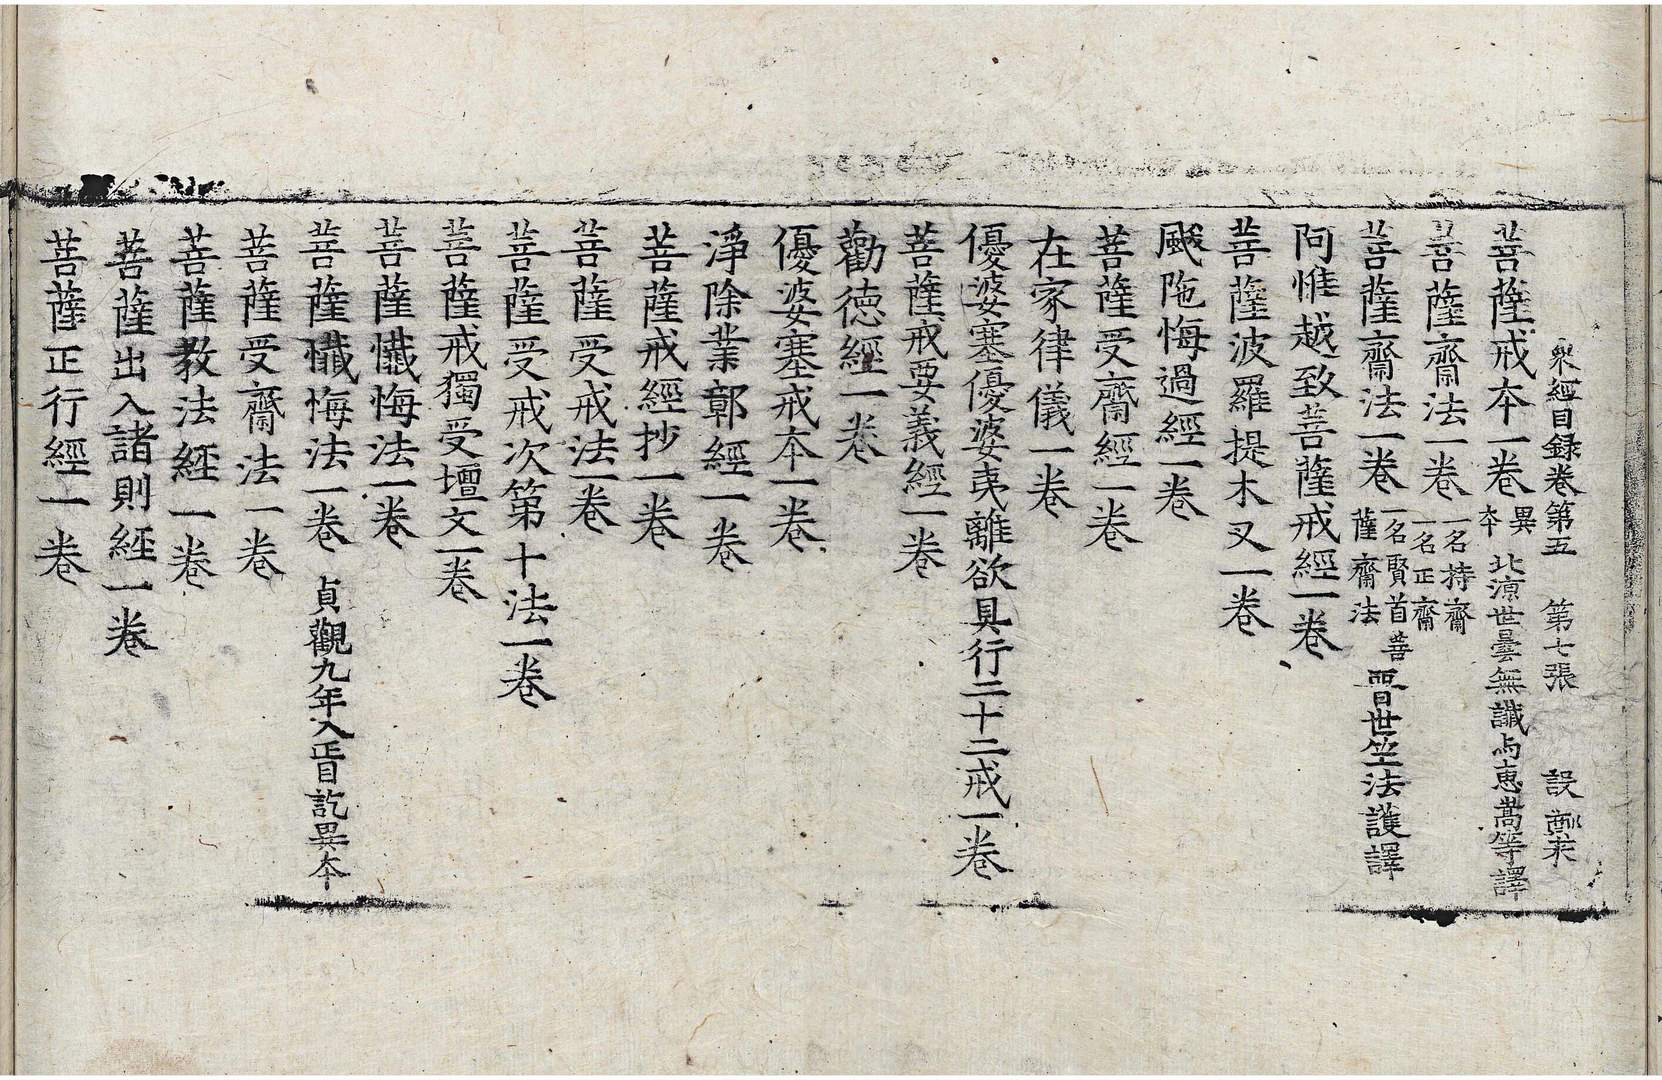 衆經目録卷第五 第七張 設
菩薩戒夲一卷 異夲 北涼世曇無讖與惠嵩等譯
菩薩齋法一卷 一名持齋 一名正齋
菩薩齋法一卷 一名賢首菩薩齋法 晉世竺法護譯
阿惟越致菩薩戒經一卷
菩薩波羅提木叉一卷
颰陁悔過經一卷
菩薩受齋經一卷
在家律儀一卷
優婆塞優婆夷離欲具行二十二戒一卷
菩薩戒要義經一卷
勸德經一卷
優婆塞戒夲一卷
淨除業鄣經一卷
菩薩戒經抄一卷
菩薩受戒法一卷
菩薩受戒次第十法一卷
菩薩戒獨受壇文一卷
菩薩懺悔法一卷
菩薩懺悔法一卷 貞觀九年入正目訖異夲
菩薩受齋法一卷
菩薩教法經一卷
菩薩出入諸則經一卷
菩薩正行經一卷